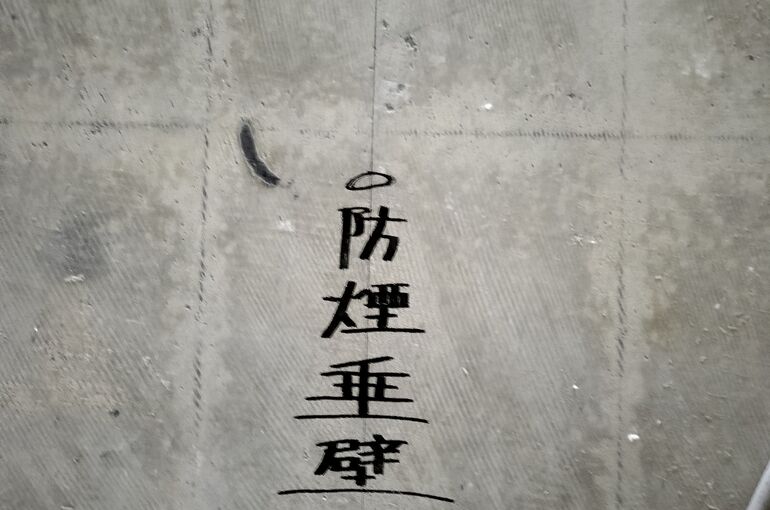 防煙垂壁